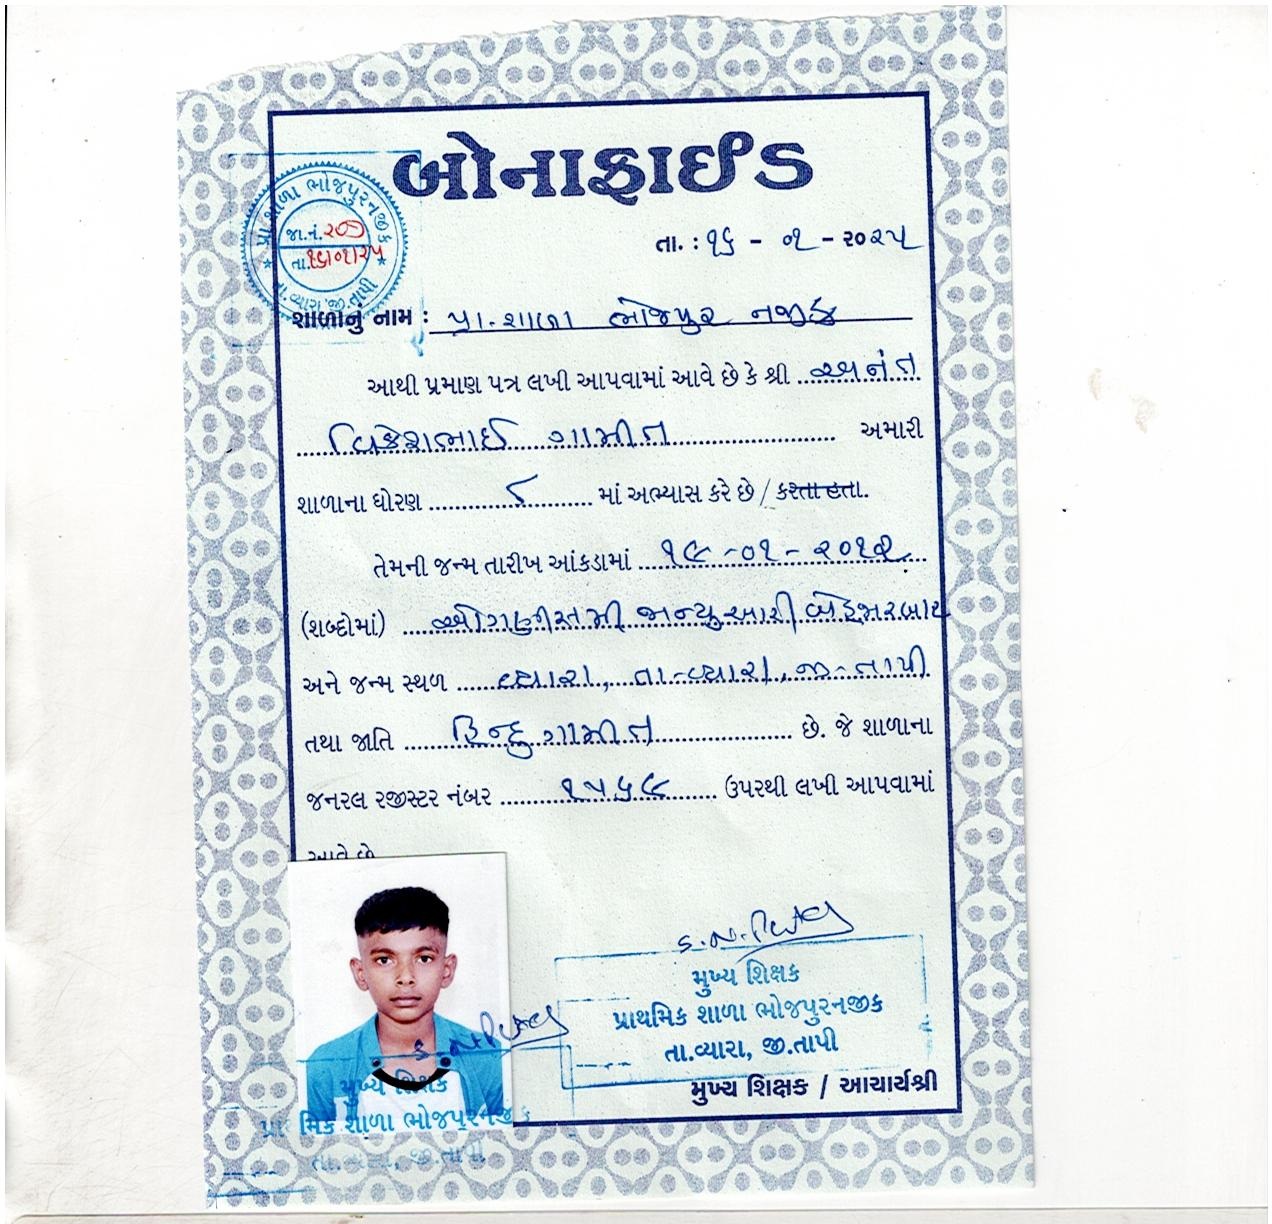 બોનાફાઈડ
પ્રા.શાળા ભોજપુરનજીક
જા.નં. ૨૦૭
તા. ૧૬/૦૧/૨૫
તા.વ્યારા,જી.તાપી
તા. : ૧૬ - ૦૧ - ૨૦૨૫
શાળાનું નામ : પ્રા.શાળા ભોજપુર નજીક
આથી પ્રમાણ પત્ર લખી આપવામાં આવે છે કે શ્રી અનંત
વિકેશભાઈ ગામીત અમારી
શાળાના ધોરણ ૮ માં અભ્યાસ કરે છે / કરતા હતા.
તેમની જન્મ તારીખ આંકડામાં ૧૯ -૦૧ - ૨૦૧૨
(શબ્દોમાં) ઓગણીસમી જાન્યુઆરી બેહજારબાર
અને જન્મ સ્થળ વ્યારા, તા-વ્યારા, જી-તાપી
તથા જાતિ હિન્દુ ગામીત છે. જે શાળાના
જનરલ રજીસ્ટર નંબર ૧૫૬૯ ઉપરથી લખી આપવામાં
આવે છે
S.N.
મુખ્ય શિક્ષક
પ્રાથમિક શાળા ભોજપુરનજીક
તા.વ્યારા, જી.તાપી
મુખ્ય શિક્ષક / આચાર્યશ્રી
મુખ્ય શિક્ષક
પ્રાથમિક શાળા ભોજપુરનજીક
તા.વ્યારા, જી.તાપી